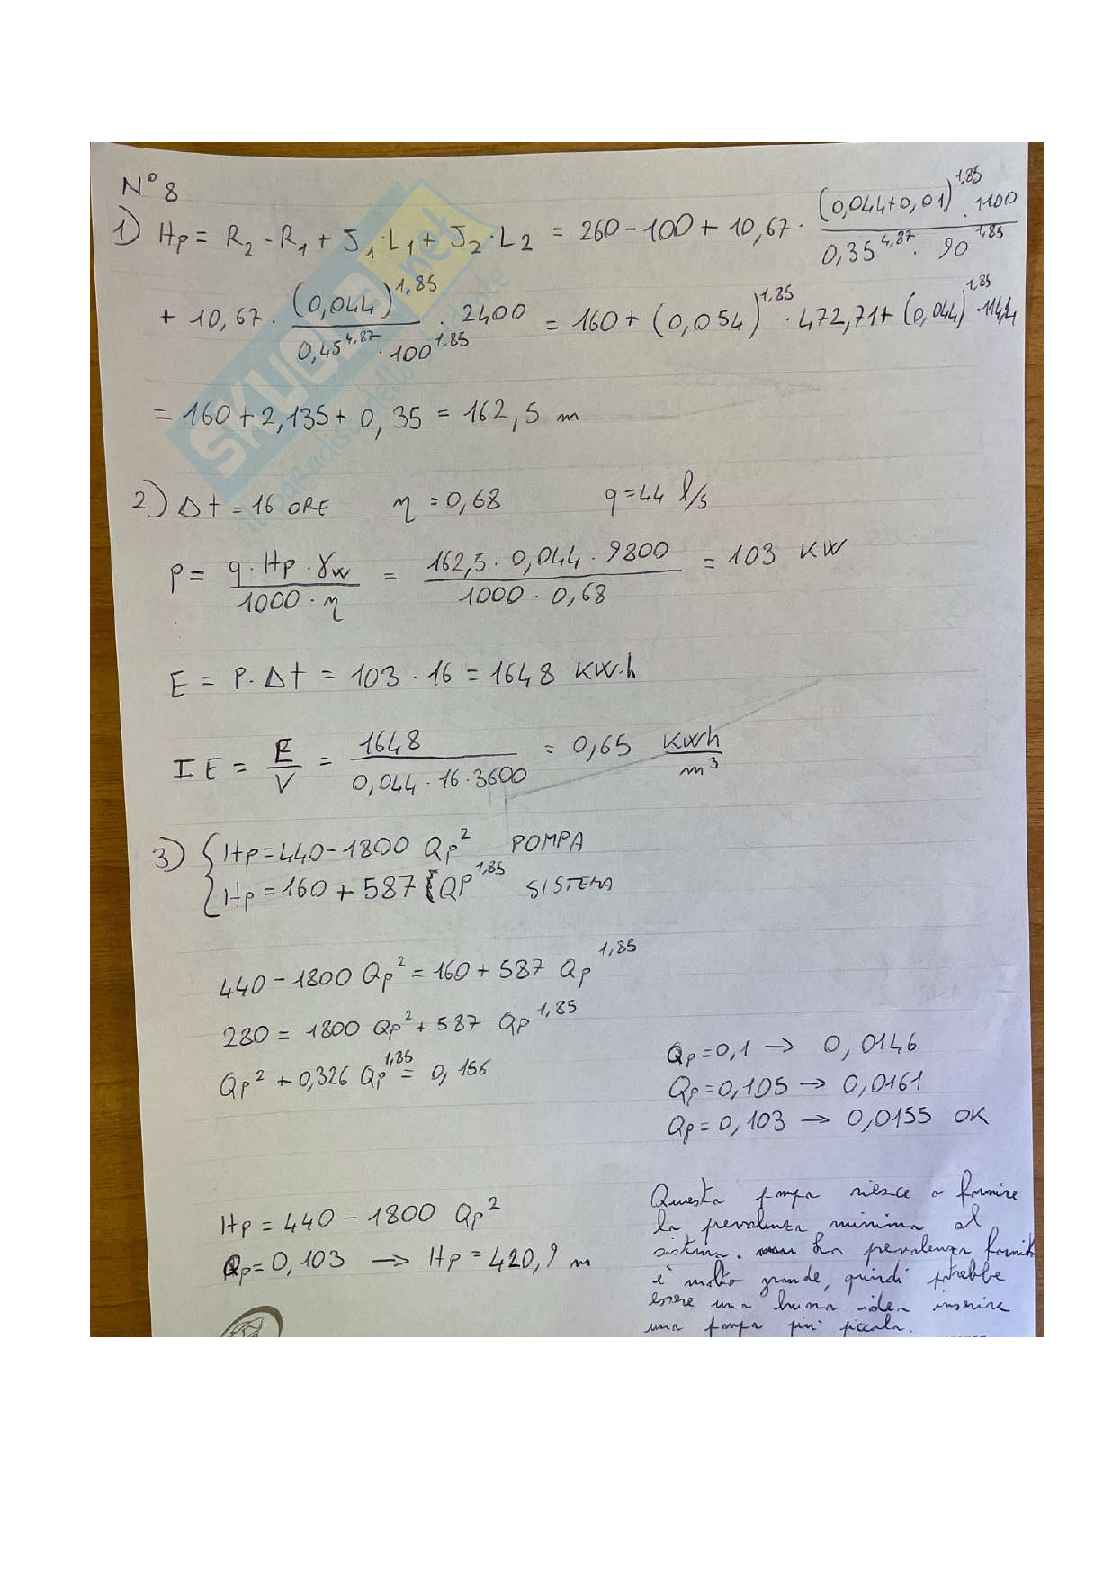 N° 8
1) Hp = R2 - R1 + J1·L1 + J2·L2 = 260 - 100 + 10,67 · (0,044+0,01)^1,85 / 0,35^4,87 · 90^1,85 · 1100
+ 10,67 · (0,044)^1,85 / 0,45^4,87 · 100^1,85 · 2400 = 160 + (0,054)^1,85 · 472,71 + (0,044)^1,85
= 160 + 2,135 + 0,35 = 162,5 m
2) Δt = 16 ORE η = 0,68 q = 44 l/s
P = q · Hp · γw / 1000 · η = 162,5 · 0,044 · 9800 / 1000 · 0,68 = 103 KW
E = P · Δt = 103 · 16 = 1648 KW·h
IE = E / V = 1648 / 0,044 · 16 · 3600 = 0,65 KWh / m³
3) { Hp = 440 - 1800 Qp² POMPA
Hp = 160 + 587 Qp^1,85 SISTEMA
440 - 1800 Qp² = 160 + 587 Qp^1,85
280 = 1800 Qp² + 587 Qp^1,85
Qp² + 0,326 Qp^1,85 = 0,156
Qp = 0,1 → 0,0146
Qp = 0,105 → 0,0161
Qp = 0,103 → 0,0155 OK
Hp = 440 - 1800 Qp²
Qp = 0,103 → Hp = 420,9 m
Questa pompa riesce a fornire
la prevalenza minima al
sistema. La prevalenza fornita
è molto grande, quindi potrebbe
essere una buona idea inserire
una pompa più piccola.
SKUOLA.net